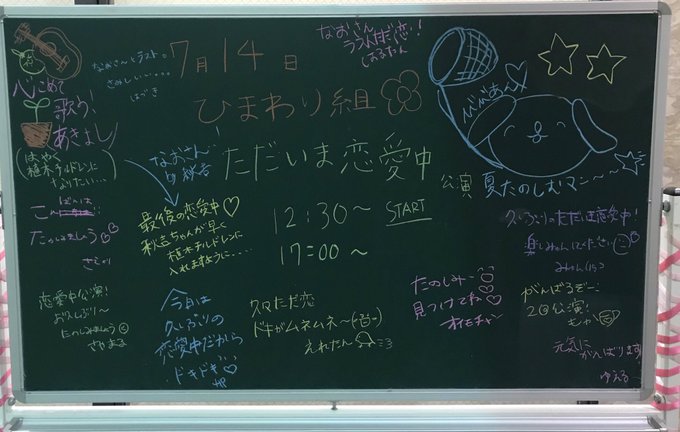 なおさん
ラストただ恋!
なおさんとラスト。
さみしい・・・・
はづき
7月14日
ひまわり組
ただいま恋愛中
公演
12:30〜 START
17:00〜
心こめて
歌う!
あきよし
(はやく
植木チルドレンに
なりたい…)
なおさん
最後の恋愛中♡
彩音ちゃんが早く
植木チルドレンに
入れますように・・・・
たのしみましょう
恋愛中公演!
お久しぶり〜
たのしみましょう
さやまる
今日は
久しぶりの
恋愛中だから
ドキドキ♡
久々ただ恋
ドキがムネムネ〜
えれたん
たのしみー
見つけてね♡
オモチャー
夏たのしむマン〜〜
久しぶりのただいま恋愛中!
楽しみましてください
がんばるぞー!
2回公演!
元気に
がんばります!
ゆえる